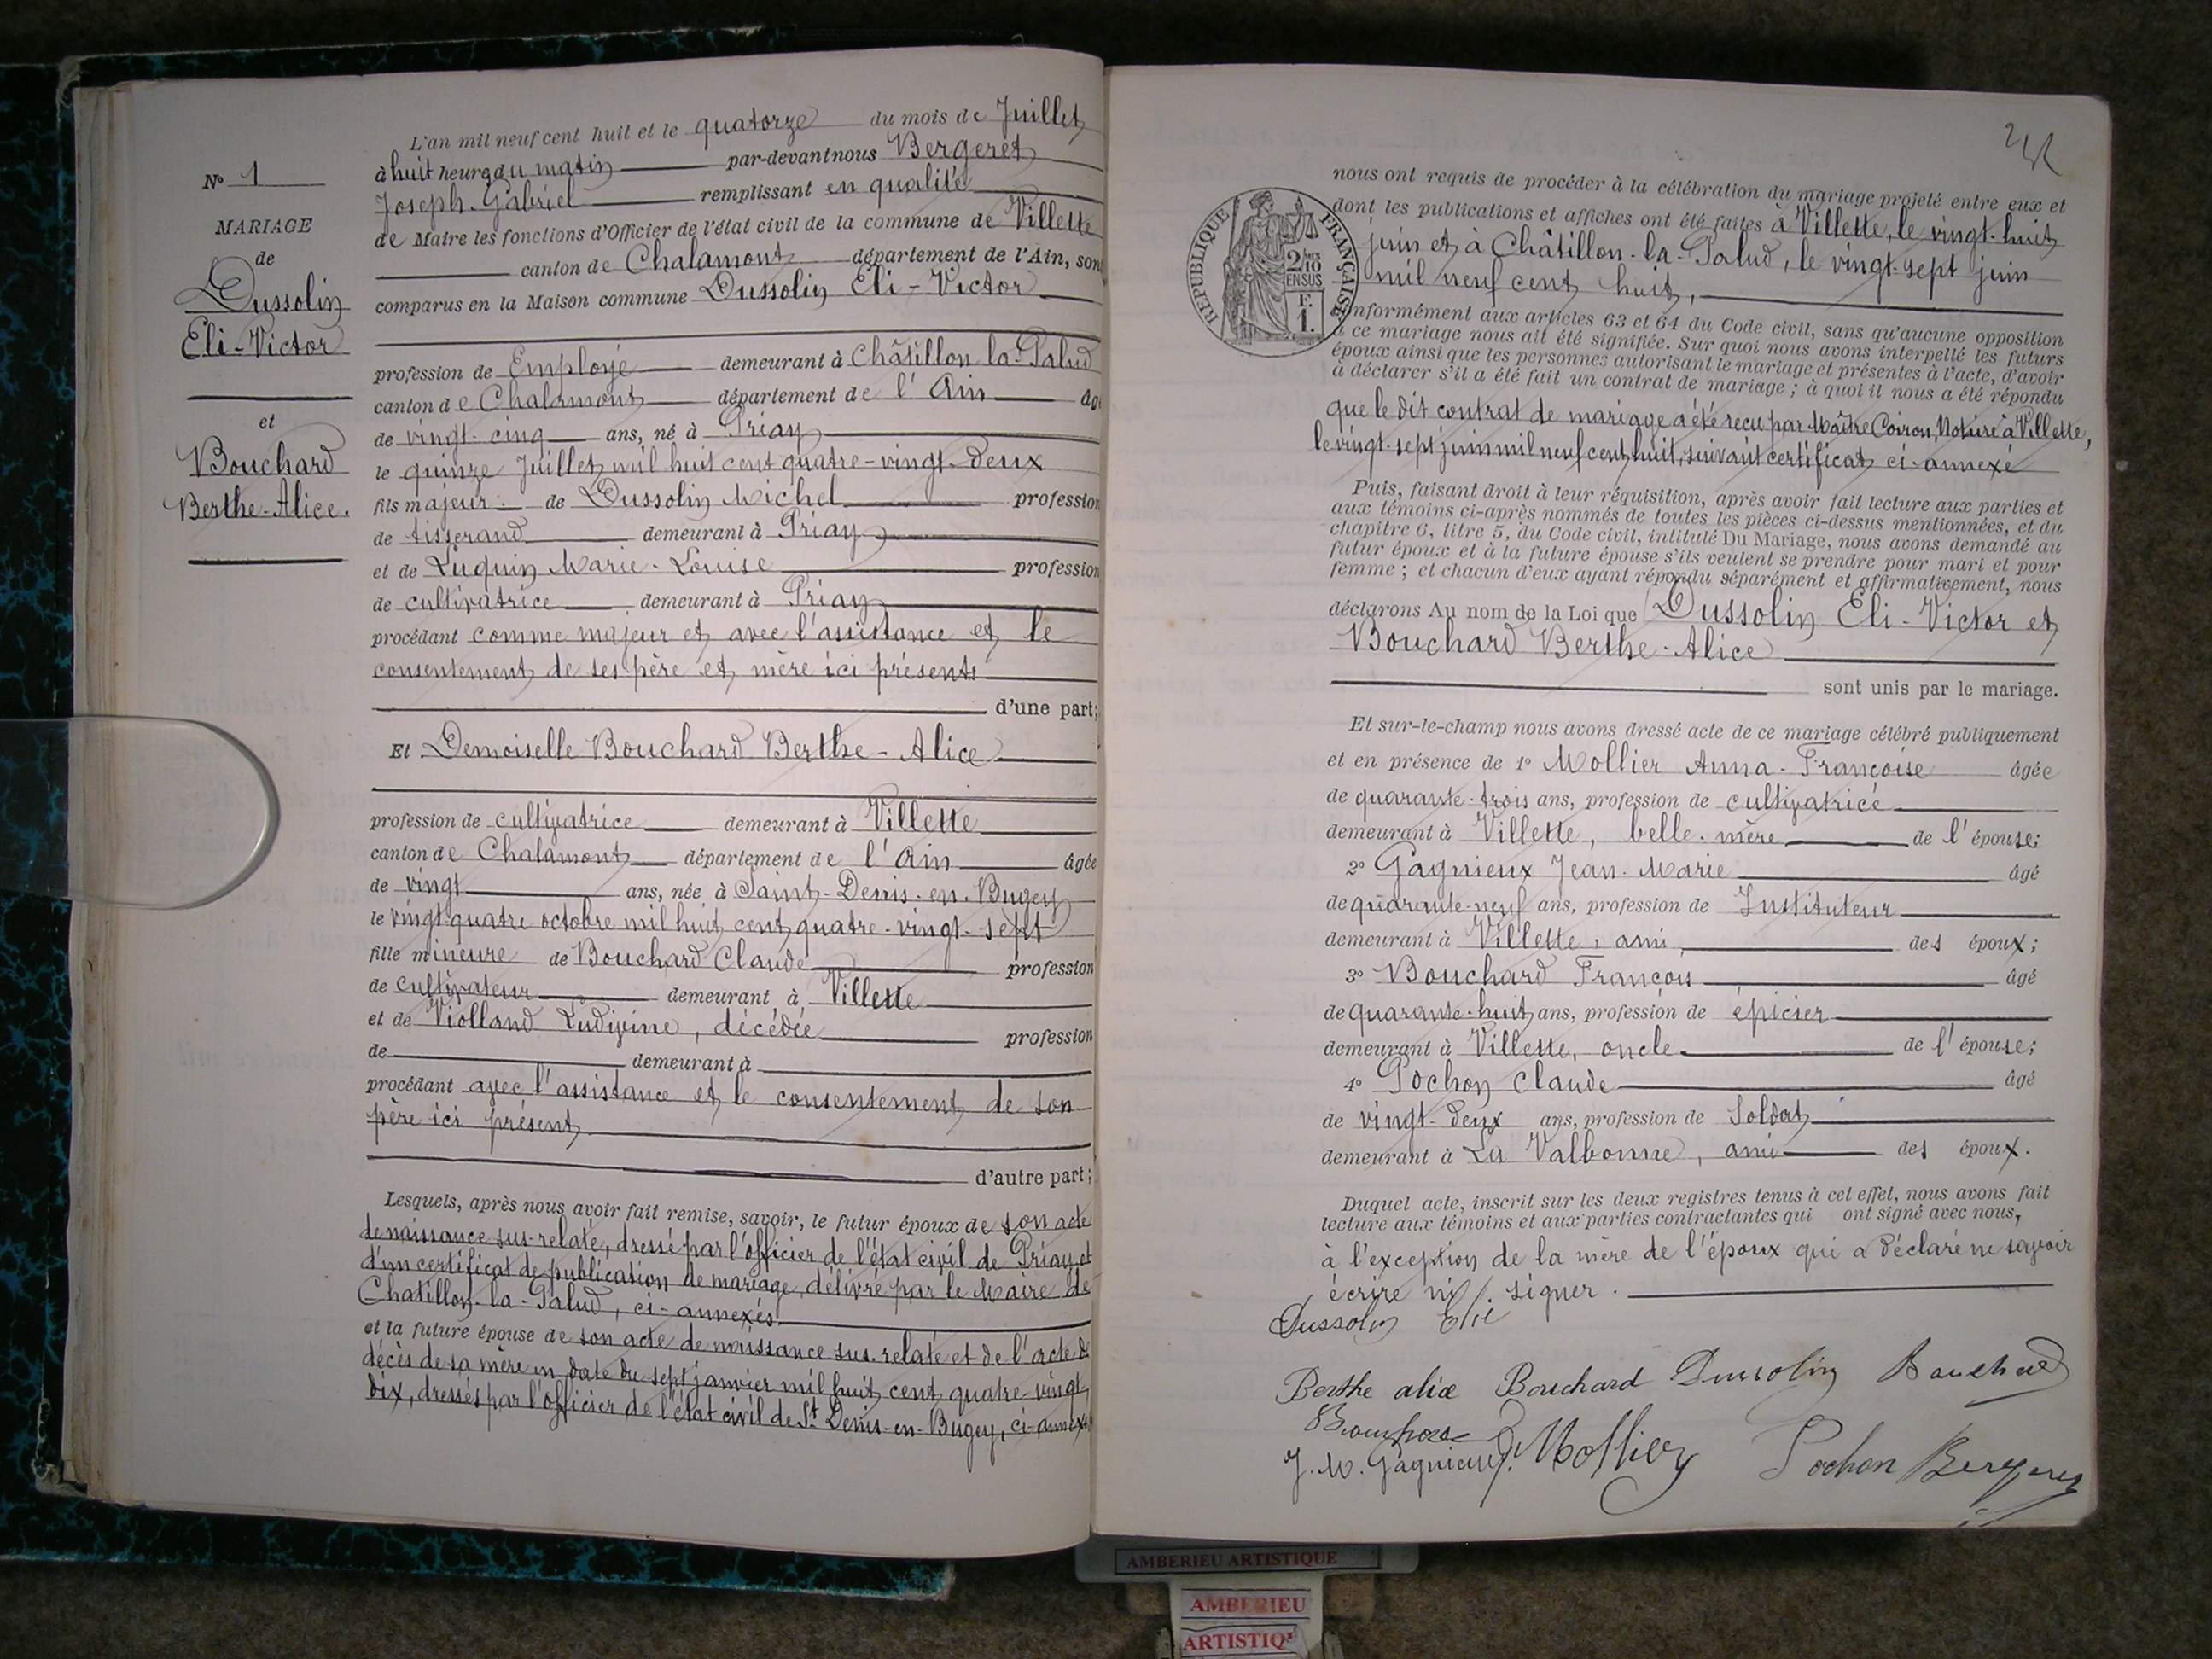 N° 1
MARIAGE
de
Dussolin
Eli-Victor
et
Bouchard
Berthe-Alice.
L'an mil neuf cent huit et le quatorze du mois de Juillet
à huit heures du matin par-devant nous Bergeret
Joseph-Gabriel remplissant en qualité
de Maire les fonctions d'Officier de l'état civil de la commune de Villette
canton de Chalamont département de l'Ain, son
comparus en la Maison commune Dussolin Eli-Victor
profession de Employé demeurant à Châtillon-la-Palud
canton de Chalamont département de l'Ain âgé
de vingt-cinq ans, né à Priay
le quinze Juillet mil huit cent quatre-vingt-deux
fils majeur de Dussolin Michel profession
de tisserand demeurant à Priay
et de Luquin Marie-Louise profession
de cultivatrice demeurant à Priay
procédant comme majeur et avec l'assistance et le
consentement de ses père et mère ici présents
d'une part;
Et Demoiselle Bouchard Berthe-Alice
profession de cultivatrice demeurant à Villette
canton de Chalamont département de l'Ain âgée
de vingt ans, née à Saint-Denis-en-Bugey
le vingt-quatre octobre mil huit cent quatre-vingt-sept
fille mineure de Bouchard Claude profession
de cultivateur demeurant à Villette
et de Violland Ludivine, décédée profession
de demeurant à
procédant avec l'assistance et le consentement de son
père ici présent
d'autre part;
Lesquels, après nous avoir fait remise, savoir, le futur époux de son acte
de naissance sus-relaté, dressé par l'officier de l'état civil de Priay et
d'un certificat de publication de mariage, délivré par le Maire de
Chatillon-la-Palud, ci-annexés
et la future épouse de son acte de naissance sus-relaté et de l'acte de
décès de sa mère en date du sept janvier mil huit cent quatre-vingt
dix, dressés par l'officier de l'état civil de St Denis-en-Bugey, ci-annexés
RÉPUBLIQUE FRANÇAISE
2/10
EN SUS
F.
1.
nous ont requis de procéder à la célébration du mariage projeté entre eux et
dont les publications et affiches ont été faites à Villette, le vingt-huit
juin et à Châtillon-la-Palud, le vingt-sept juin
mil neuf cent huit,
conformément aux articles 63 et 64 du Code civil, sans qu'aucune opposition
à ce mariage nous ait été signifiée. Sur quoi nous avons interpellé les futurs
époux ainsi que les personnes autorisant le mariage et présentes à l'acte, d'avoir
à déclarer s'il a été fait un contrat de mariage; à quoi il nous a été répondu
que le dit contrat de mariage a été reçu par Maître Coiron, Notaire à Villette,
le vingt-sept juin mil neuf cent huit, suivant certificat ci-annexé
Puis, faisant droit à leur réquisition, après avoir fait lecture aux parties et
aux témoins ci-après nommés de toutes les pièces ci-dessus mentionnées, et du
chapitre 6, titre 5, du Code civil, intitulé Du Mariage, nous avons demandé au
futur époux et à la future épouse s'ils veulent se prendre pour mari et pour
femme; et chacun d'eux ayant répondu séparément et affirmativement, nous
déclarons Au nom de la Loi que Dussolin Eli-Victor et
Bouchard Berthe-Alice
sont unis par le mariage.
Et sur-le-champ nous avons dressé acte de ce mariage célébré publiquement
et en présence de 1° Mollier Anna-Françoise âgée
de quarante-trois ans, profession de cultivatrice
demeurant à Villette, belle-mère de l'épouse;
2° Gagnieux Jean-Marie âgé
de quarante-neuf ans, profession de Instituteur
demeurant à Villette, ami des époux;
3° Bouchard François âgé
de quarante-huit ans, profession de épicier
demeurant à Villette, oncle de l'épouse;
4° Pochon Claude âgé
de vingt-deux ans, profession de Soldat
demeurant à La Valbonne, ami des époux.
Duquel acte, inscrit sur les deux registres tenus à cet effet, nous avons fait
lecture aux témoins et aux parties contractantes qui ont signé avec nous,
à l'exception de la mère de l'époux qui a déclaré ne savoir
écrire ni signer.
Dussolin Elie
Berthe alice Bouchard Dussolin Bouchard
J. M. Gagnieux Mollier Pochon Bergeret
AMBERIEU ARTISTIQUE
AMBERIEU
ARTISTIQ